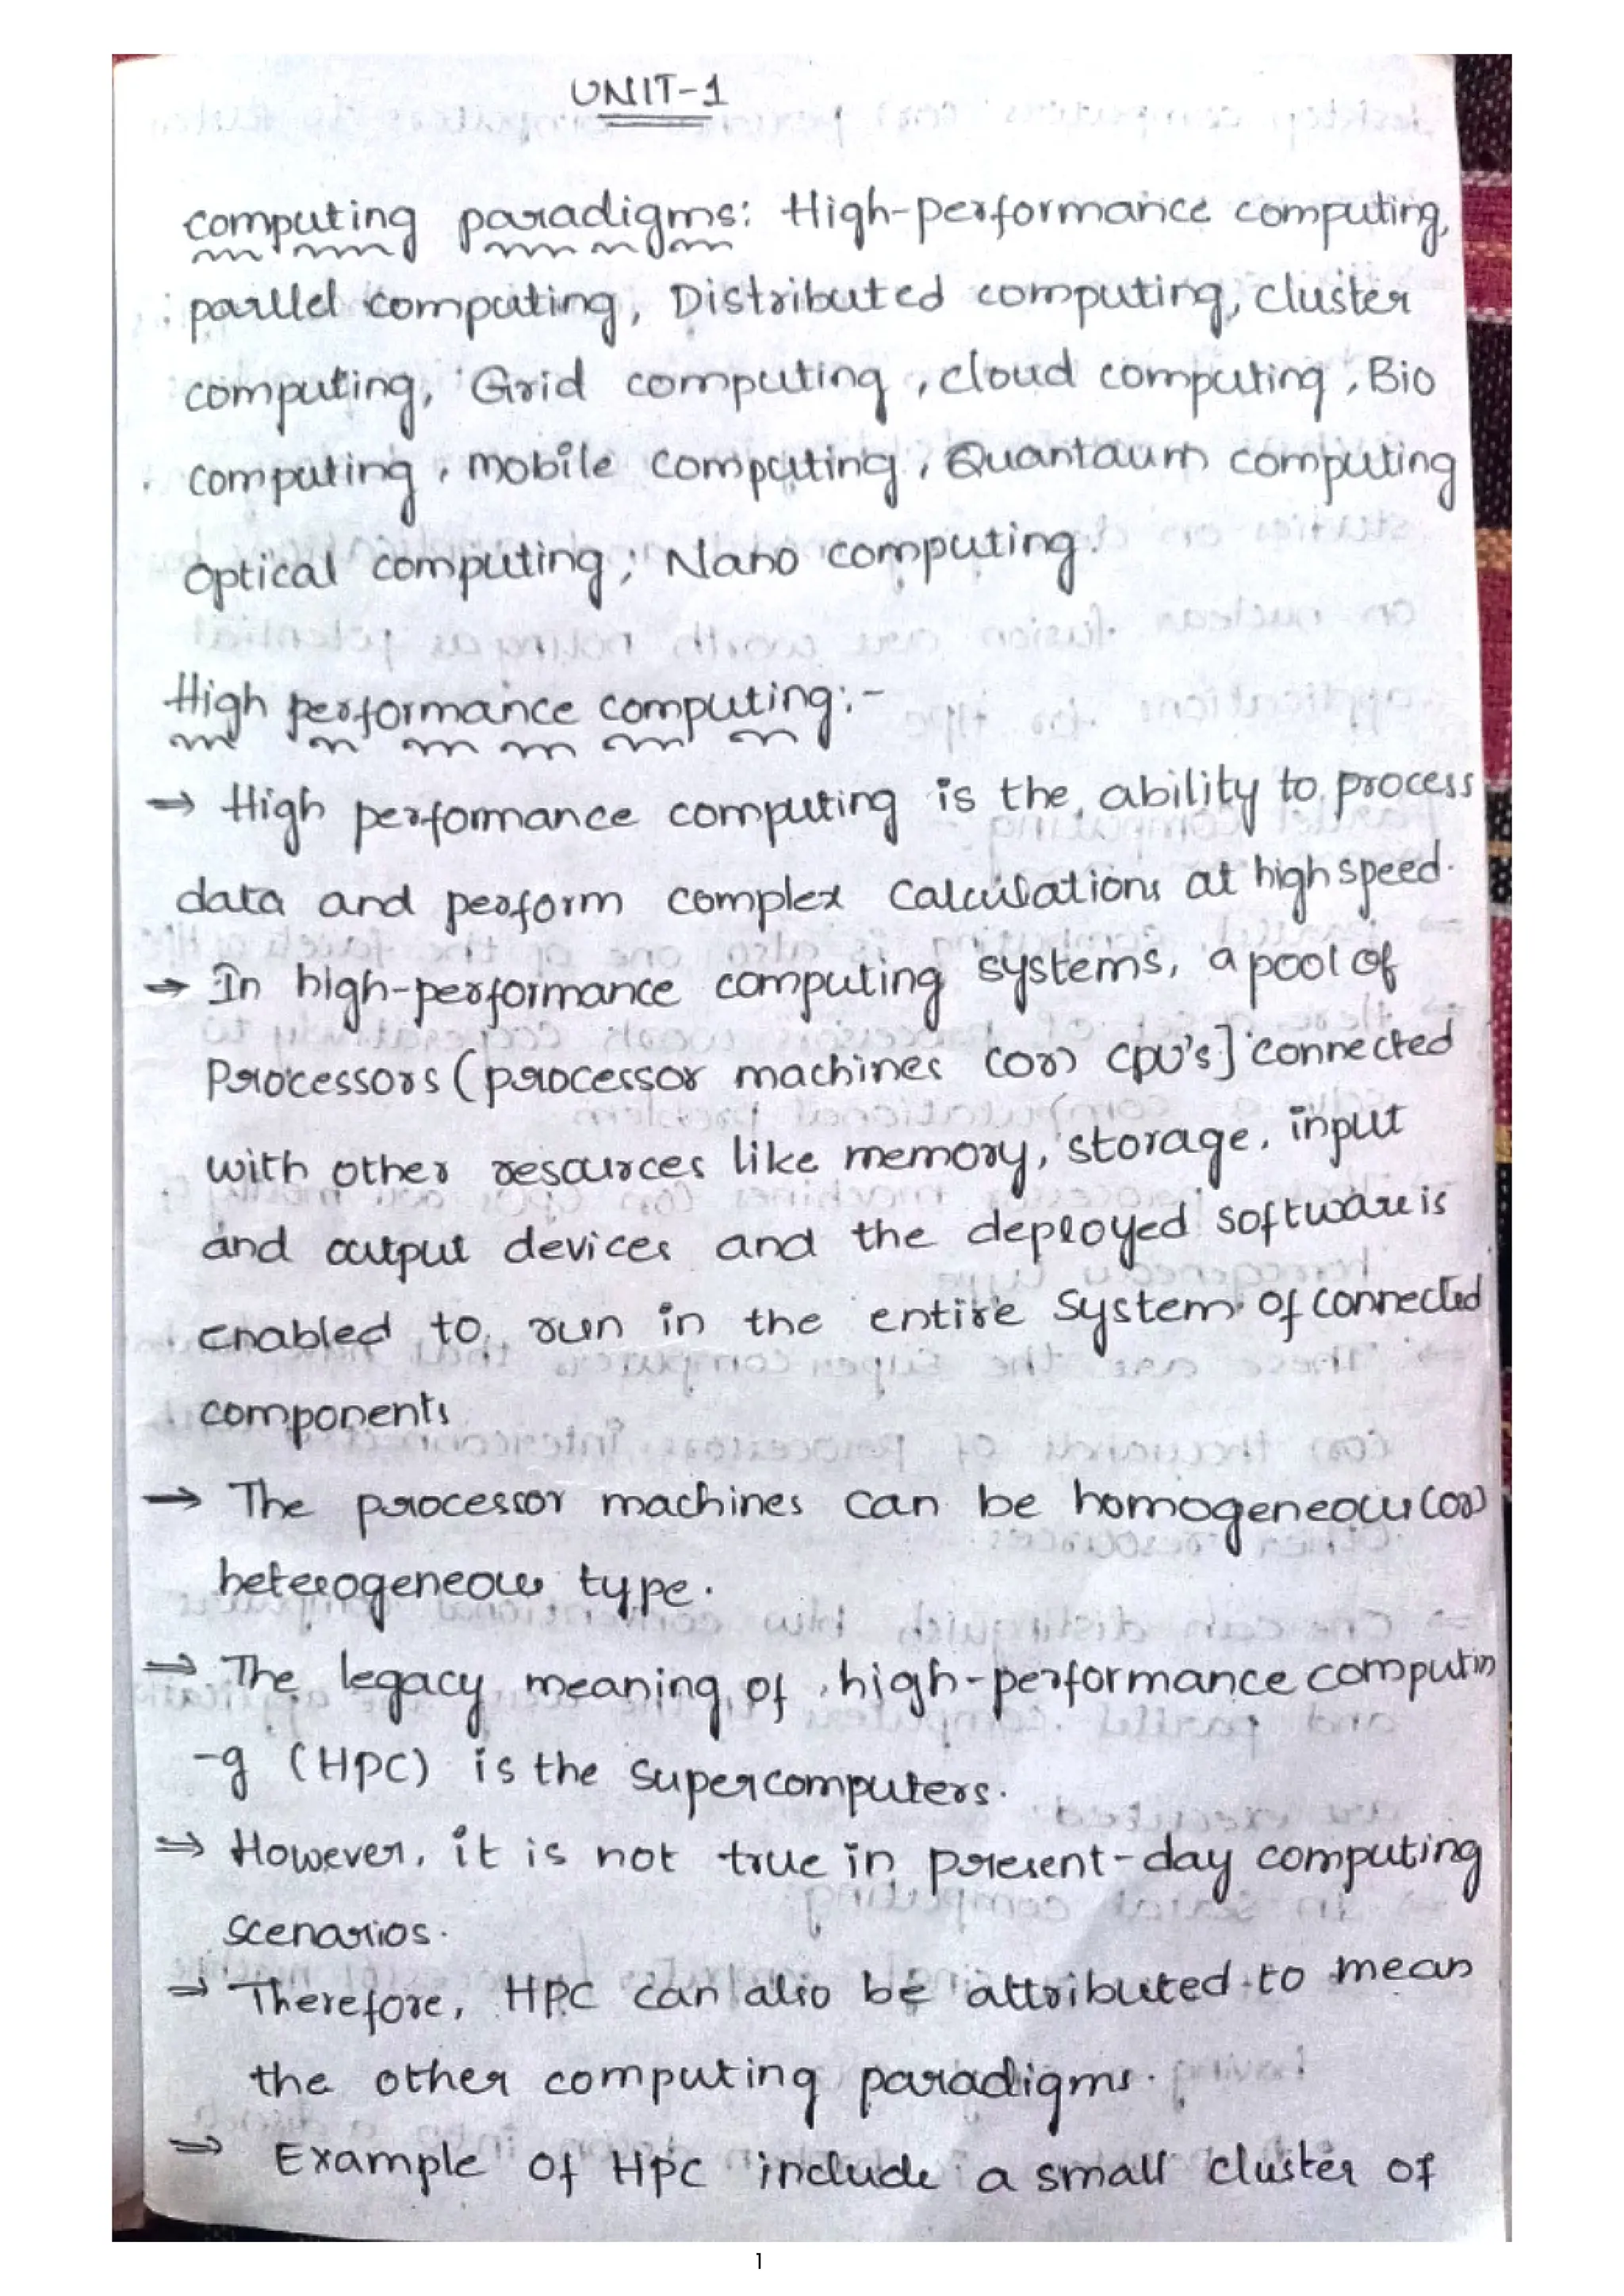 UNIT-1
computing paradigms: High-performance computing,
parllel computing, Distributed computing, cluster
computing, Grid computing, cloud computing, Bio
computing, mobile computing, Quantaum computing
optical computing, Nano computing.
High performance computing:-
→ High performance computing is the ability to process
data and perform complex calculations at high speed.
→ In high-performance computing systems, a pool of
Processors (processor machines (or) CPU's] connected
with other resources like memory, storage, input
and output devices and the deployed software is
enabled to run in the entire system of connected
components
→ The processor machines can be homogeneous (or)
heterogeneous type.
→ The legacy meaning of high-performance computin
-g (HPC) is the supercomputers.
⇒ However, it is not true in present-day computing
scenarios.
→ Therefore, HPC can also be attributed to mean
the other computing paradigms.
⇒ Example of Hpc include a small cluster of
1